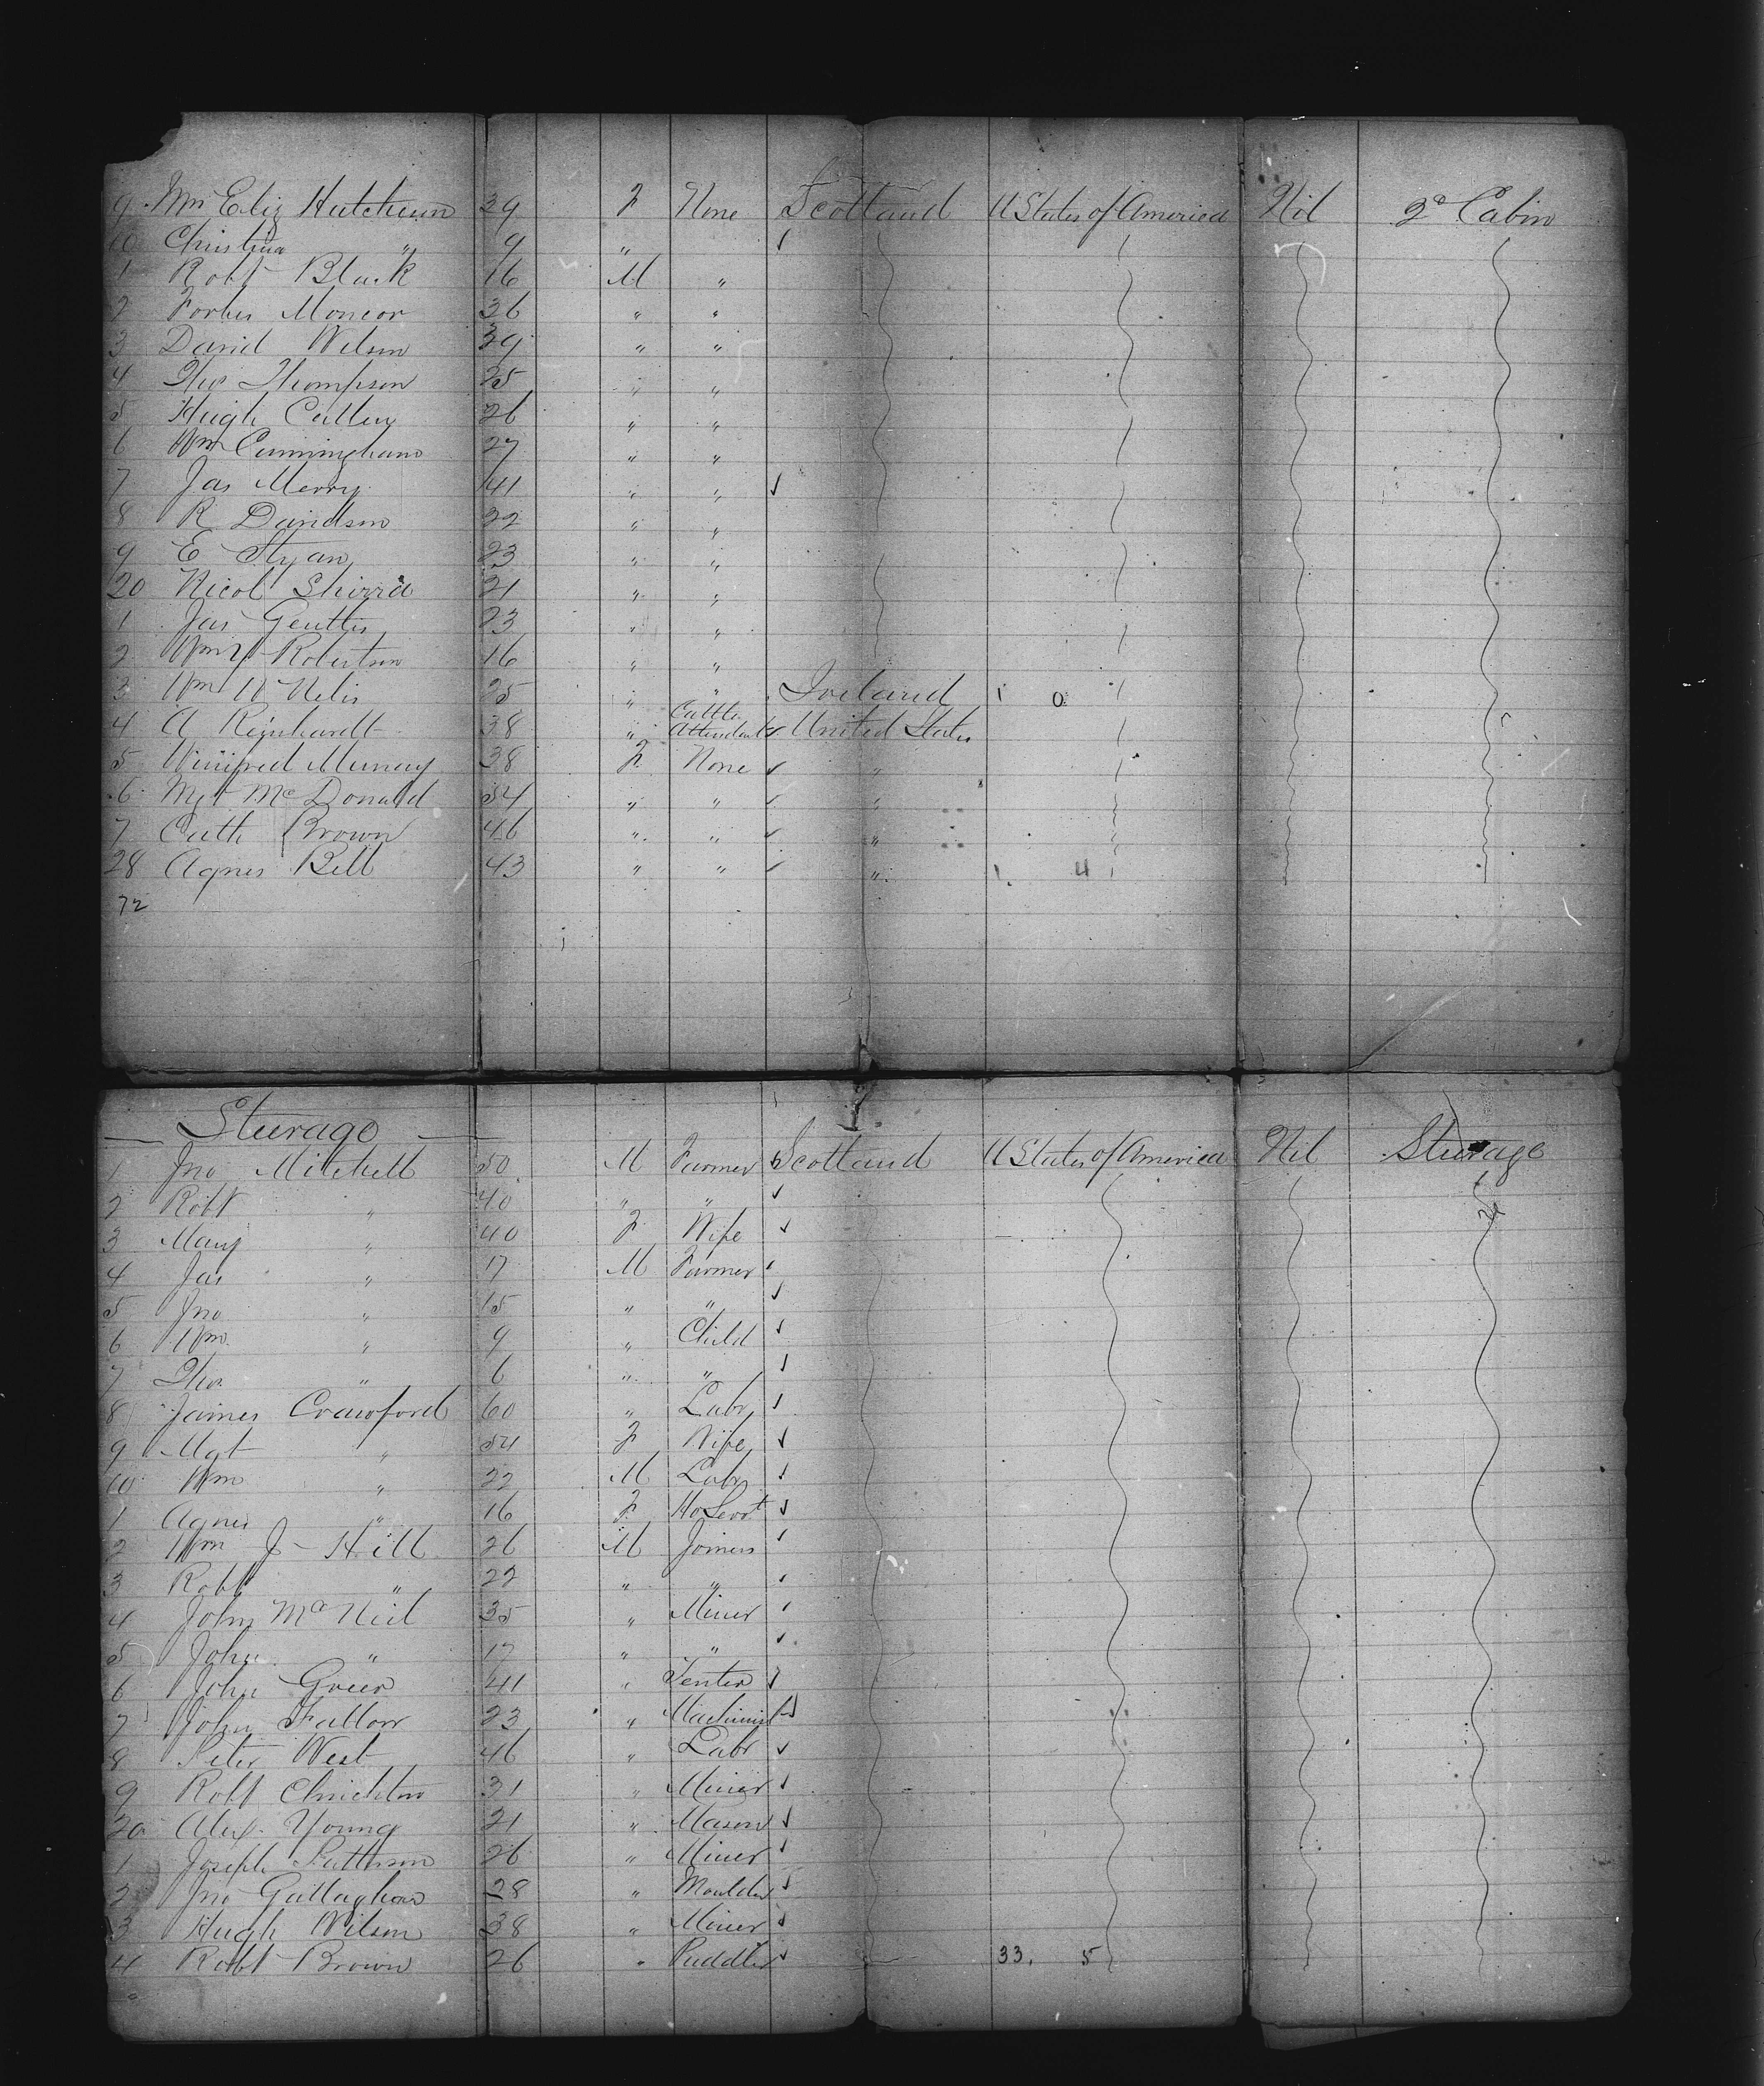 9 Mrs Eliz Hutcheson 39 F None Scotland U States of America Nil 2d Cabin
10 Christina " 9 "
1 Robt Black 16 M "
2 Forbes Moncor 36 " "
3 David Wilson 39 " "
4 Thos Thompson 25 " "
5 Hugh Culley 26 " "
6 Wm Cunningham 27 " "
7 Jas Merry 41 " "
8 R Davidson 22 " "
9 E Styan 23 " "
20 Nicol Shirrid 21 " "
1 Jas Gentles 23 " "
2 Wm Y Robertson 16 " "
3 Wm W Nelis 25 " " Ireland 1 0
4 A Reinhardt 38 " Cattle Attendant United States
5 Winifred Murray 38 F None "
6 Mgt McDonald 54 " " "
7 Cath Brown 46 " " "
28 Agnes Bell 43 " " " 1. 4
72
Steerage
1 Jno Mitchell 50 M Farmer Scotland U States of America Nil Steerage
2 Robt " 40 " "
3 Mary " 40 F Wife
4 Jas " 17 M Farmer
5 Jno " 15 " "
6 Wm " 9 " Child
7 Thos " 6 " "
8 James Crawford 60 " Labr
9 Mgt " 54 F Wife
10 Wm " 22 M Labr
1 Agnes " 16 F Ho Servt
2 Wm J Hill 26 M Joiners
3 Robt " 22 " "
4 John McNeil 35 " Miner
5 John " 17 " "
6 John Greer 41 " Tenter
7 John Fallon 23 " Machinist
8 Peter West 46 " Labr
9 Robt Chrichton 31 " Miner
20 Alex. Young 21 " Mason
1 Joseph Patterson 26 " Miner
2 Jno Gallagher 28 " Moulder
3 Hugh Wilson 38 " Miner
4 Robt Brown 26 " Puddler 33. 5